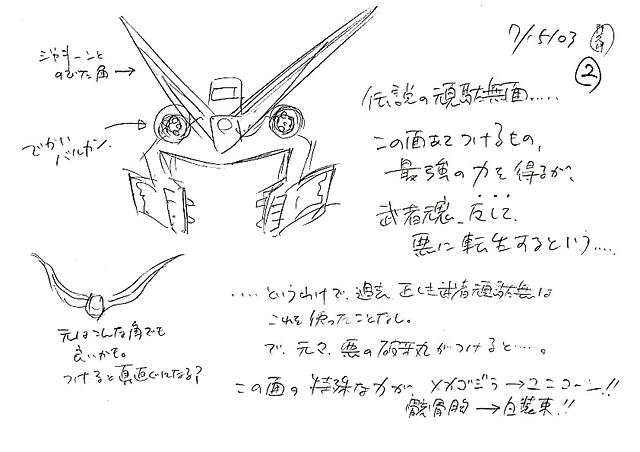 7/15/03
②
ジャキーンと
のびた角→
でかい
バルカン.
伝説の頑駄無面.....
この面をつけるもの、
最強の力を得るが、
武者魂、反して、
悪に転生するという....
元はこんな角でも
良いかも。
つけると真直ぐになる?
....というわけで、過去、正しき武者頑駄無は
これを使ったことなし。
で、元々、悪の 丸がつけると....。
この面の特殊な力が、メカゴジラ→ユニコーン!!
骸骨胸→白装束!!